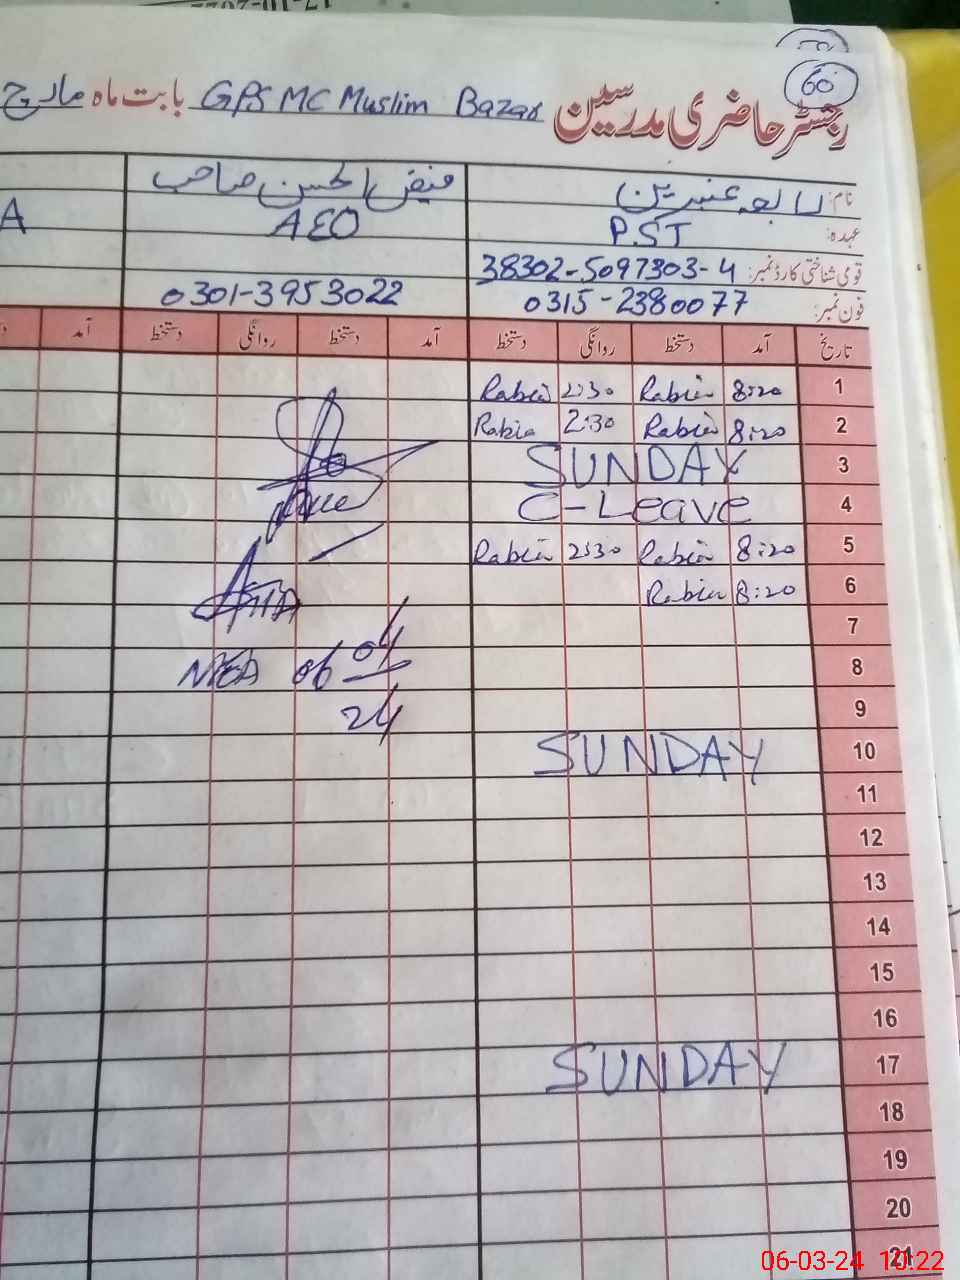 60
رجسٹر حاضری مدرسین GPS MC Muslim Bazar بابت ماہ مارچ
نام: رابعہ عنبرین
فیض الحسن صاحب
عہدہ: P.ST
AEO
A
قومی شناختی کارڈ نمبر: 38302-5097303-4
فون نمبر: 0315-2380077
0301-3953022
تاریخ آمد دستخط روانگی دستخط آمد دستخط روانگی دستخط آمد
1 8:20 Rabia 2:30 Rabia
2 8:20 Rabia 2:30 Rabia
3 SUNDAY
4 C-Leave
5 8:20 Rabia 2:30 Rabia
6 8:20 Rabia
7
8
9
10 SUNDAY
11
12
13
14
15
16
17 SUNDAY
18
19
20
21
04
24
06-03-24 10:22